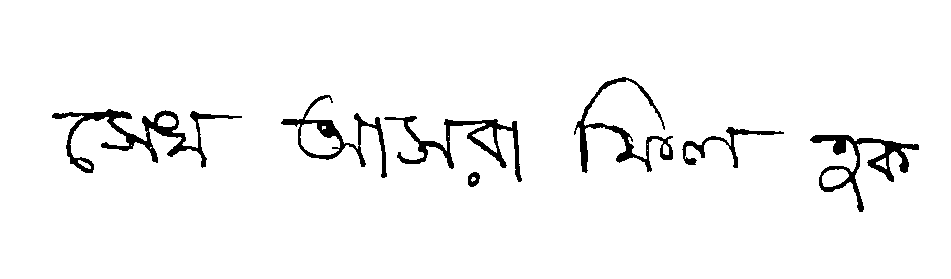 সেখ আসরা মিল হক